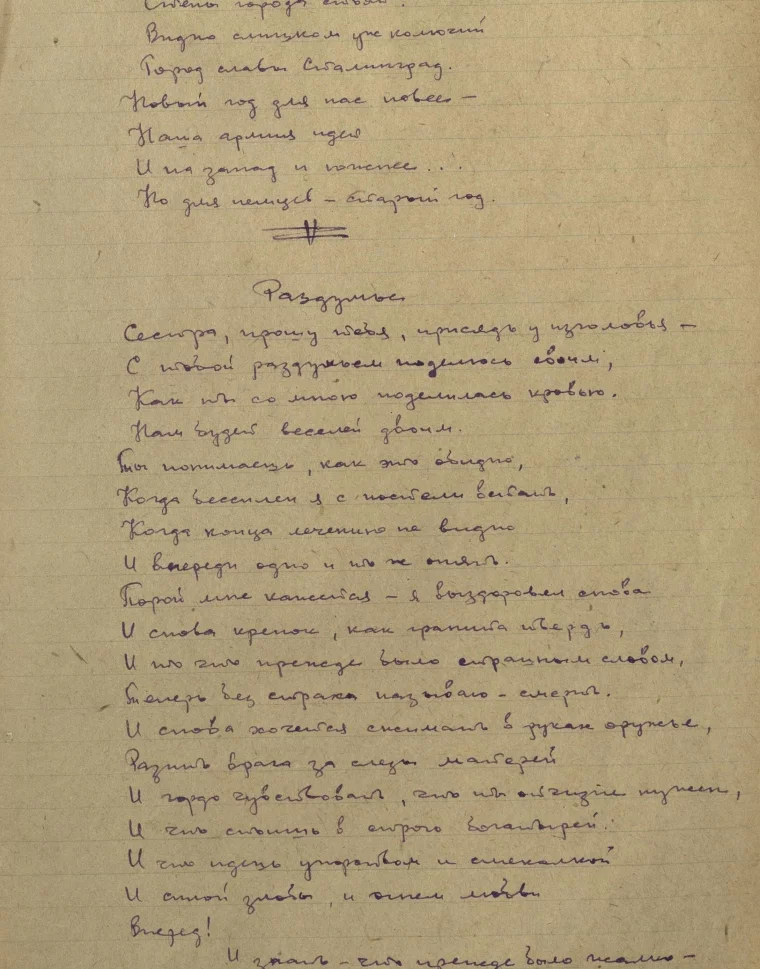 Стены города
Видно слишком уж колючий
Город славы Сталинград.
Новый год для нас повсе –
Наша армия идет
И на запад и южнее...
Но для немцев – старый год.
Раздумье
Сестра, прошу тебя, присядь у изголовья –
С тобой раздумьем поделюсь своим,
Как ты со мною поделилась кровью.
Нам будет веселей двоим.
Ты понимаешь, как это обидно,
Когда бессилен я с постели встать,
Когда конца лечению не видно
И впереди одно и то ж опять.
Порой мне кажется – я выздоровел снова
И снова крепок, как гранита твердь,
И то что прежде было страшным словом,
Теперь без страха называю – смерть.
И снова хочется сжимать в руках оружье,
Разить врага за слезы матерей
И гордо чувствовать, что ты отчизне нужен,
И что стоишь в строю богатырей.
И что идешь упорством и смекалкой
И силой злобы, и огнем любви
Вперед!
И знать – что прежде было жалко –